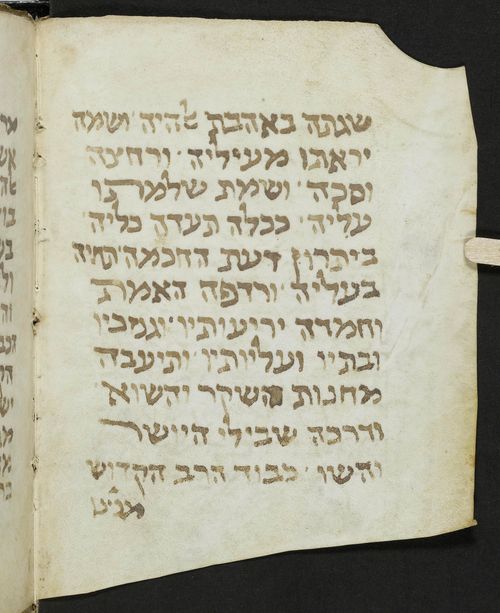 שגתה באהבת ﭏהיה ושמה
יראתו מעיליה ורחצה
וסכה ושמת
עליה ככלה תעדה כליה
ביתרון דעת החכמה תחיה
בעליה ורדפה האמת
וחמדה יריעותיו
ובתיו ועליותיו ותיעבה
מחנות השקר והשוא
ודרכה שבילי היושר
והשו כבוד הרב הקדוש